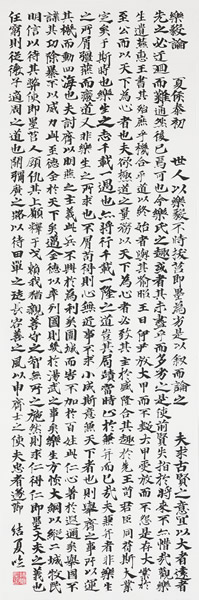 樂毅論　夏侯泰初　世人以樂毅不時拔莒即墨為劣是以叙而論之　夫求古賢之意宜以大者遠者
先之必迂迴而難通然後已焉可也今樂氏之趣或者其未盡乎而多劣之是使前賢失指於將來不亦惜哉觀樂
生遺燕惠王書其殆庶乎機合乎道以終始者與其喻昭王曰伊尹放大甲而不疑大甲受放而不怨是存大業於
至公而以天下為心者也夫欲極道之量務以天下為心者必致其主於盛隆合其趣於先王苟君臣同符斯大業
定矣于斯時也樂生之志千載一遇也亦將行千載一隆之道豈其局蹟當時止於兼并而已哉夫兼并者非樂生
之所屑彊燕而廢道又非樂生之所求也不屑苟得則心無近事不求小成斯意兼天下者也則舉齊之事所以運
其機而動四海也夫討齊以明燕主之義此兵不興於為利矣圍城而害不加於百姓此仁心著於遐邇矣舉國不
謀其功除暴不以威力此至德全於天下矣邁全德以率列國則幾於湯武之事矣樂生方恢大綱以縱二城牧民
明信以待其弊使即墨莒人顧仇其上願釋干戈賴我猶親善守之智無所之施然則求仁得仁即墨大夫之義也
任窮則從微子適周之道也開彌廣之路以待田單之徒長容善之風以申齊士之志使夫忠者遂節　結夏